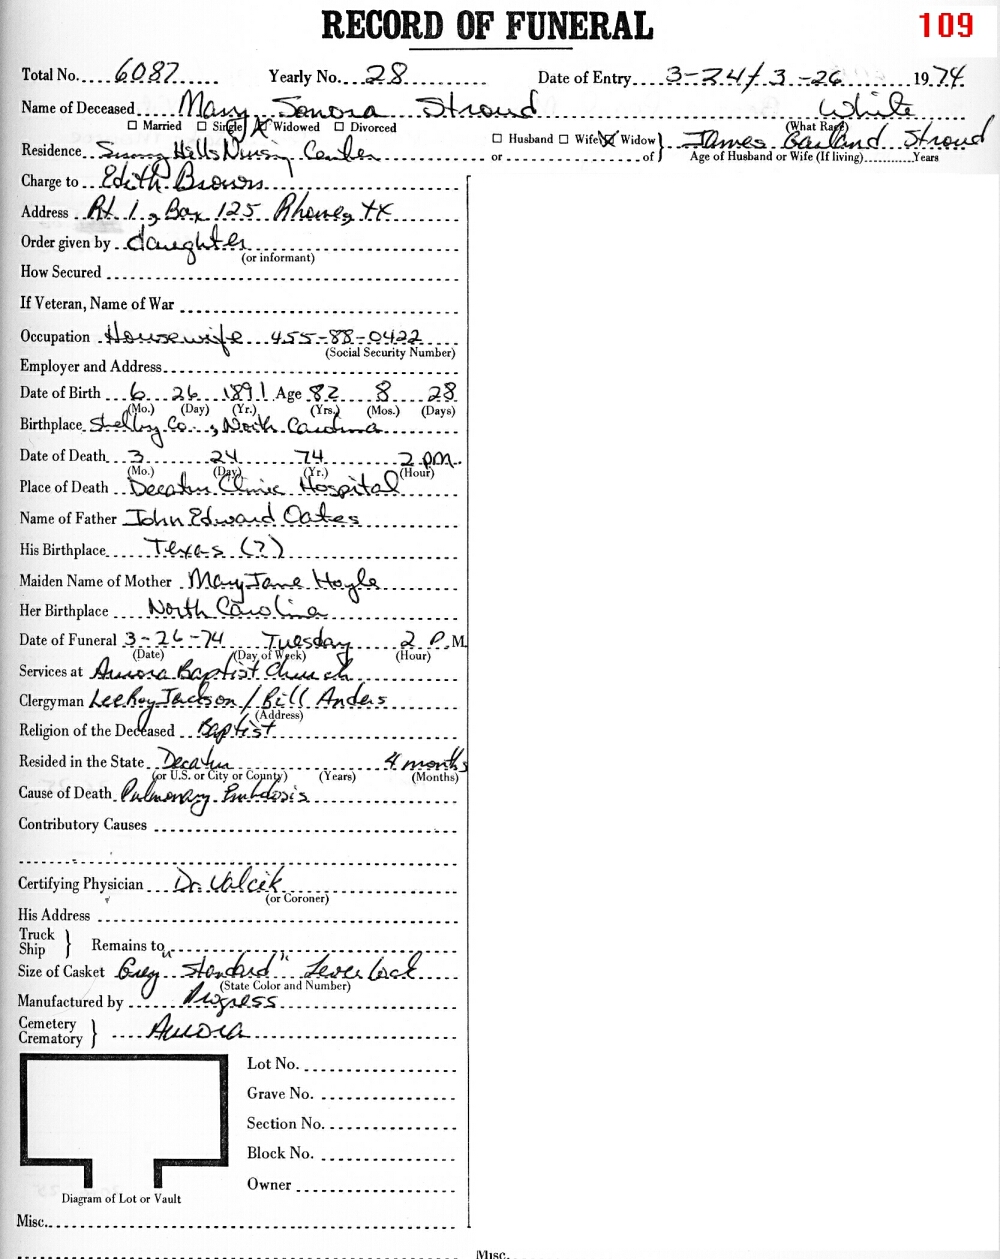 RECORD OF FUNERAL
109
Total No. 6087 Yearly No. 28 Date of Entry 3-24/3-26 1974
Name of Deceased Mary Sonora Stroud White
(What Race)
☐ Married ☐ Single ☒ Widowed ☐ Divorced
☐ Husband ☐ Wife ☒ Widow } James Garland Stroud
Residence Sunny Hills Nursing Center or of } Age of Husband or Wife (If living) Years
Charge to Edith Brown
Address Rt. 1, Box 125 Rhome, TX
Order given by daughter
(or informant)
How Secured
If Veteran, Name of War
Occupation Housewife 455-88-0422
(Social Security Number)
Employer and Address
Date of Birth 6 26 1891 Age 82 8 28
(Mo.) (Day) (Yr.) (Yrs.) (Mos.) (Days)
Birthplace Shelby Co., North Carolina
Date of Death 3 24 74 2 pm.
(Mo.) (Day) (Yr.) (Hour)
Place of Death Decatur Clinic Hospital
Name of Father John Edward Oates
His Birthplace Texas (?)
Maiden Name of Mother Mary Jane Hoyle
Her Birthplace North Carolina
Date of Funeral 3-26-74 Tuesday 2 P.M.
(Date) (Day of Week) (Hour)
Services at Aurora Baptist Church
Clergyman LeeRoy Jackson / Bill Anders
(Address)
Religion of the Deceased Baptist
Resided in the State Decatur 4 months
(or U.S. or City or County) (Years) (Months)
Cause of Death Pulmonary Embolosis
Contributory Causes
Certifying Physician Dr. Valcik
(or Coroner)
His Address
Truck
Ship } Remains to
Size of Casket Grey "Standard" Lever lock
(State Color and Number)
Manufactured by Progress
Cemetery
Crematory } Aurora
Lot No.
Grave No.
Section No.
Block No.
Owner
Diagram of Lot or Vault
Misc.
Misc.